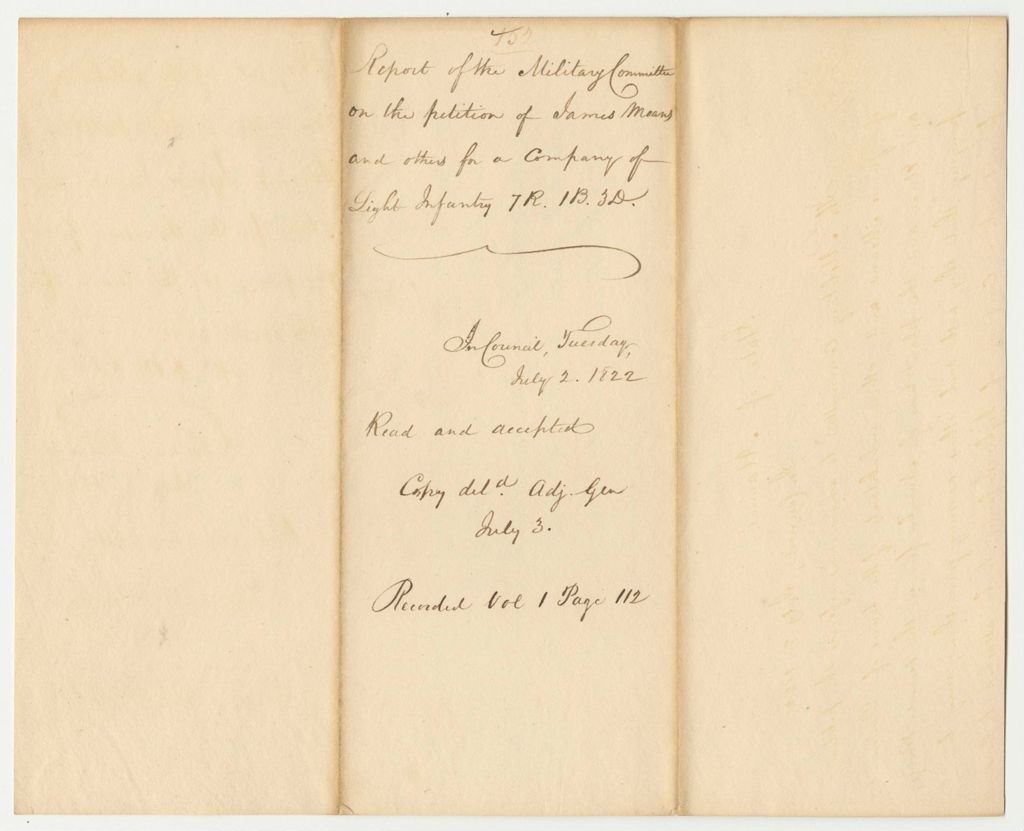 Report of the Military Committee
on the petition of James Means
and others for a Company of
Light Infantry 7R. 1B. 3D.
In Council, Tuesday,
July 2. 1822
Read and accepted
Copy deld. Adj. Gen
July 3.
Recorded Vol 1 Page 112